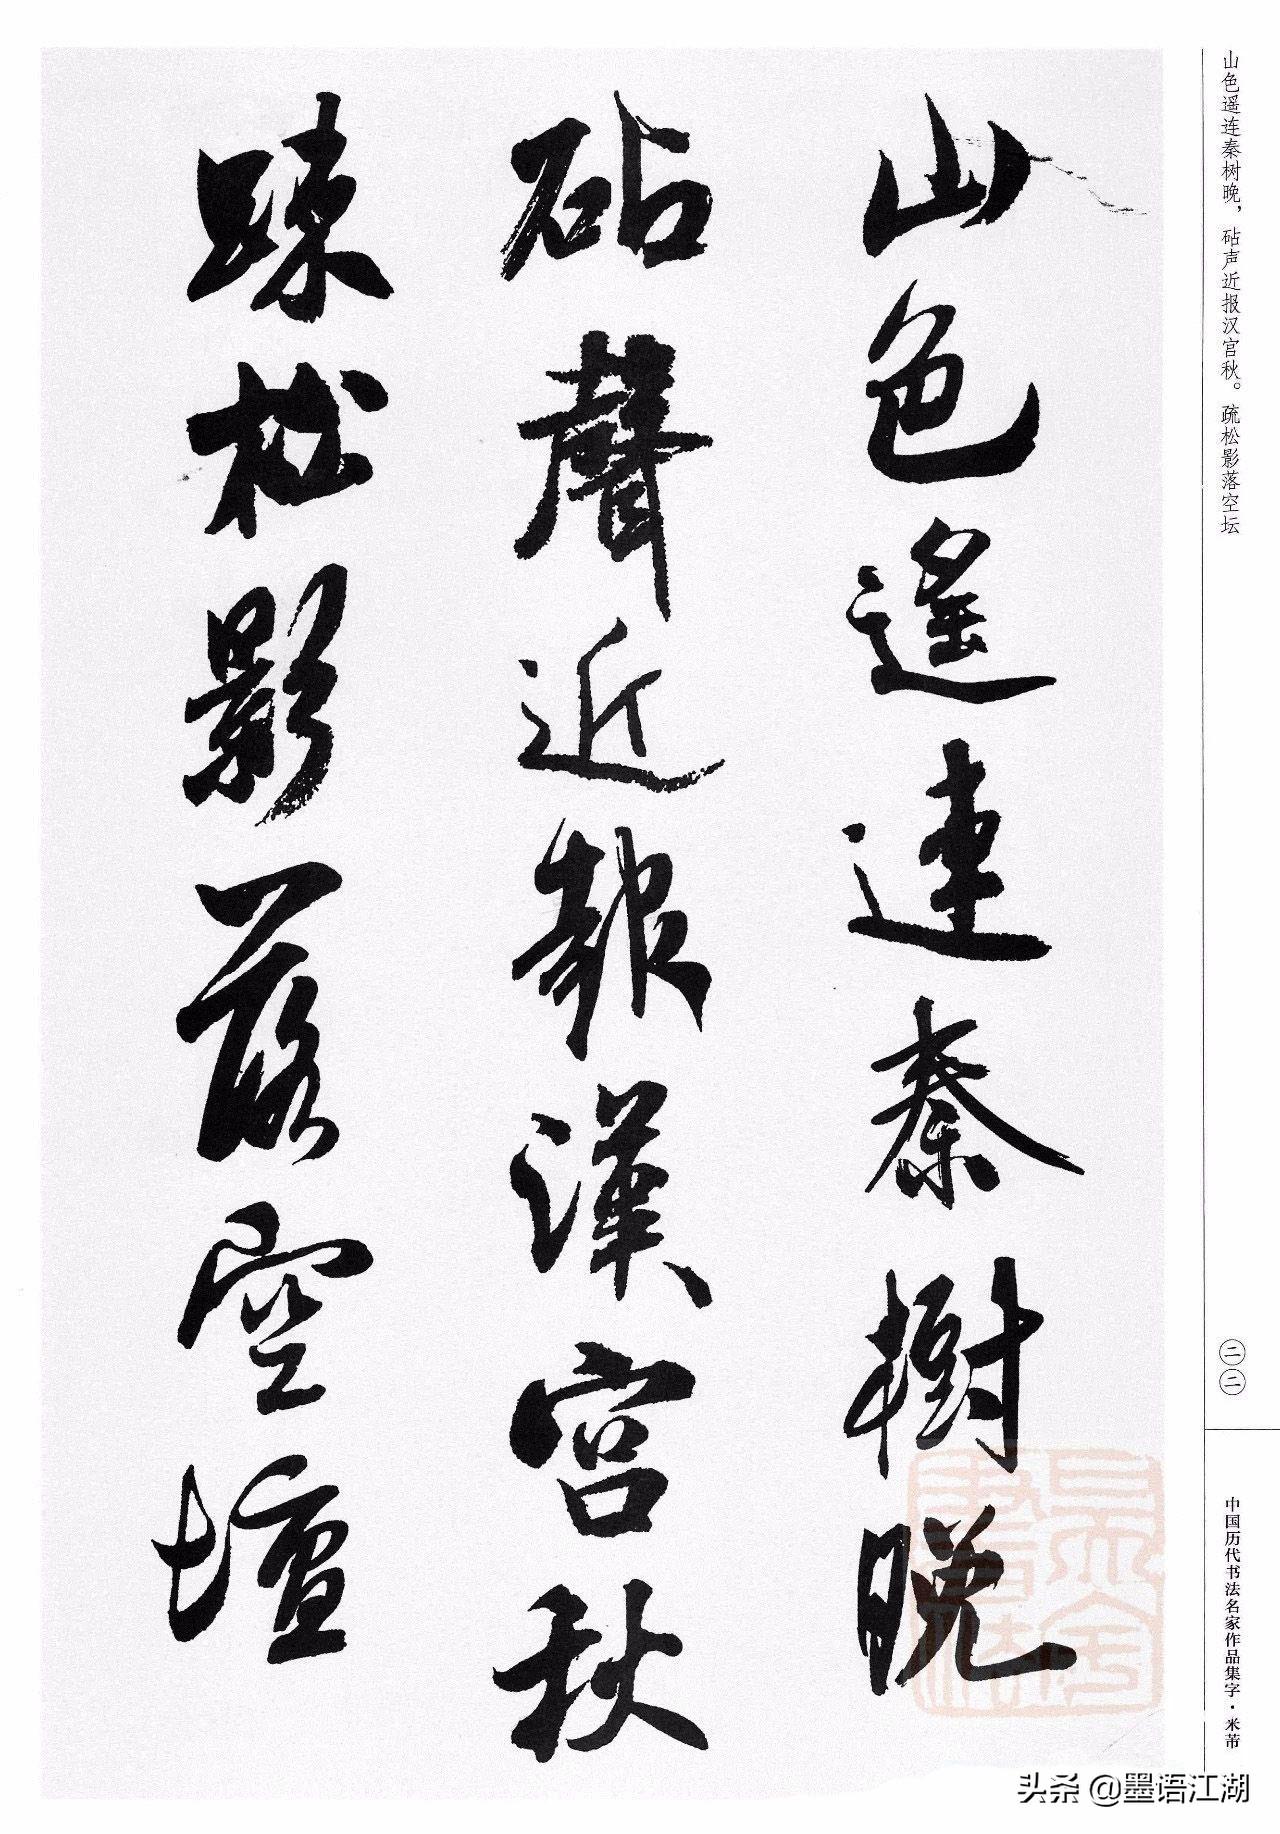 山色遥连秦树晚，砧声近报汉宫秋。疏松影落空坛
山色遙連秦樹晚
砧聲近報漢宮秋
踈松影落空壇
二二
中国历代书法名家作品集字·米芾
头条 @墨语江湖